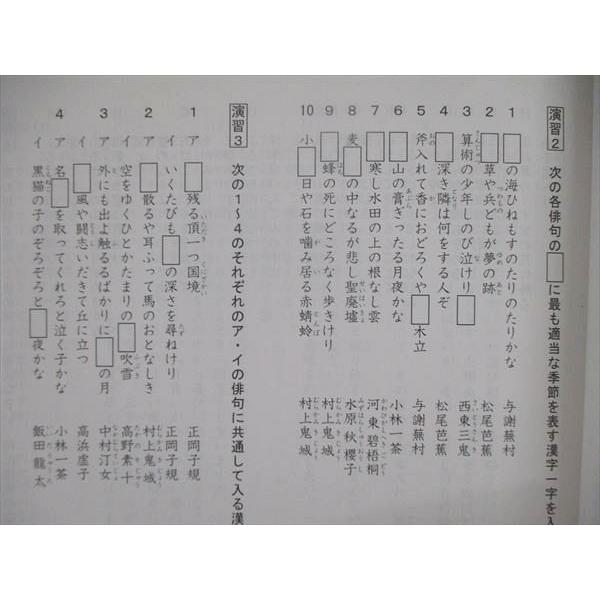 演習2 次の各俳句の□に最も適当な季節を表す漢字一字を入
1 □の海ひねもすのたりのたりかな 与謝蕪村
2 □草や兵どもが夢の跡 松尾芭蕉
3 算術の少年しのび泣けり□ 西東三鬼
4 □深き隣は何をする人ぞ 松尾芭蕉
5 斧入れて香におどろくや□木立 与謝蕪村
6 □山の膏ぎったる月夜かな 小林一茶
7 □寒し水田の上の根なし雲 河東碧梧桐
8 麦□の中なるが悲し聖廃墟 水原秋櫻子
9 □蜂の死にどころなく歩きけり 村上鬼城
10 小□日や石を噛み居る赤蜻蛉 村上鬼城
演習3 次の1〜4のそれぞれのア・イの俳句に共通して入る漢
1 ア □残る頂一つ国境 正岡子規
イ いくたびも□の深さを尋ねけり 正岡子規
2 ア □散るや耳ふって馬のおとなしき 村上鬼城
イ 空をゆくひとかたまりの□吹雪 高野素十
3 ア 外にも出よ触るるばかりに□の月 中村汀女
イ □風や闘志いだきて丘に立つ 高浜虚子
4 ア 名□を取ってくれろと泣く子かな 小林一茶
イ 黒猫の子のぞろぞろと□夜かな 飯田龍太